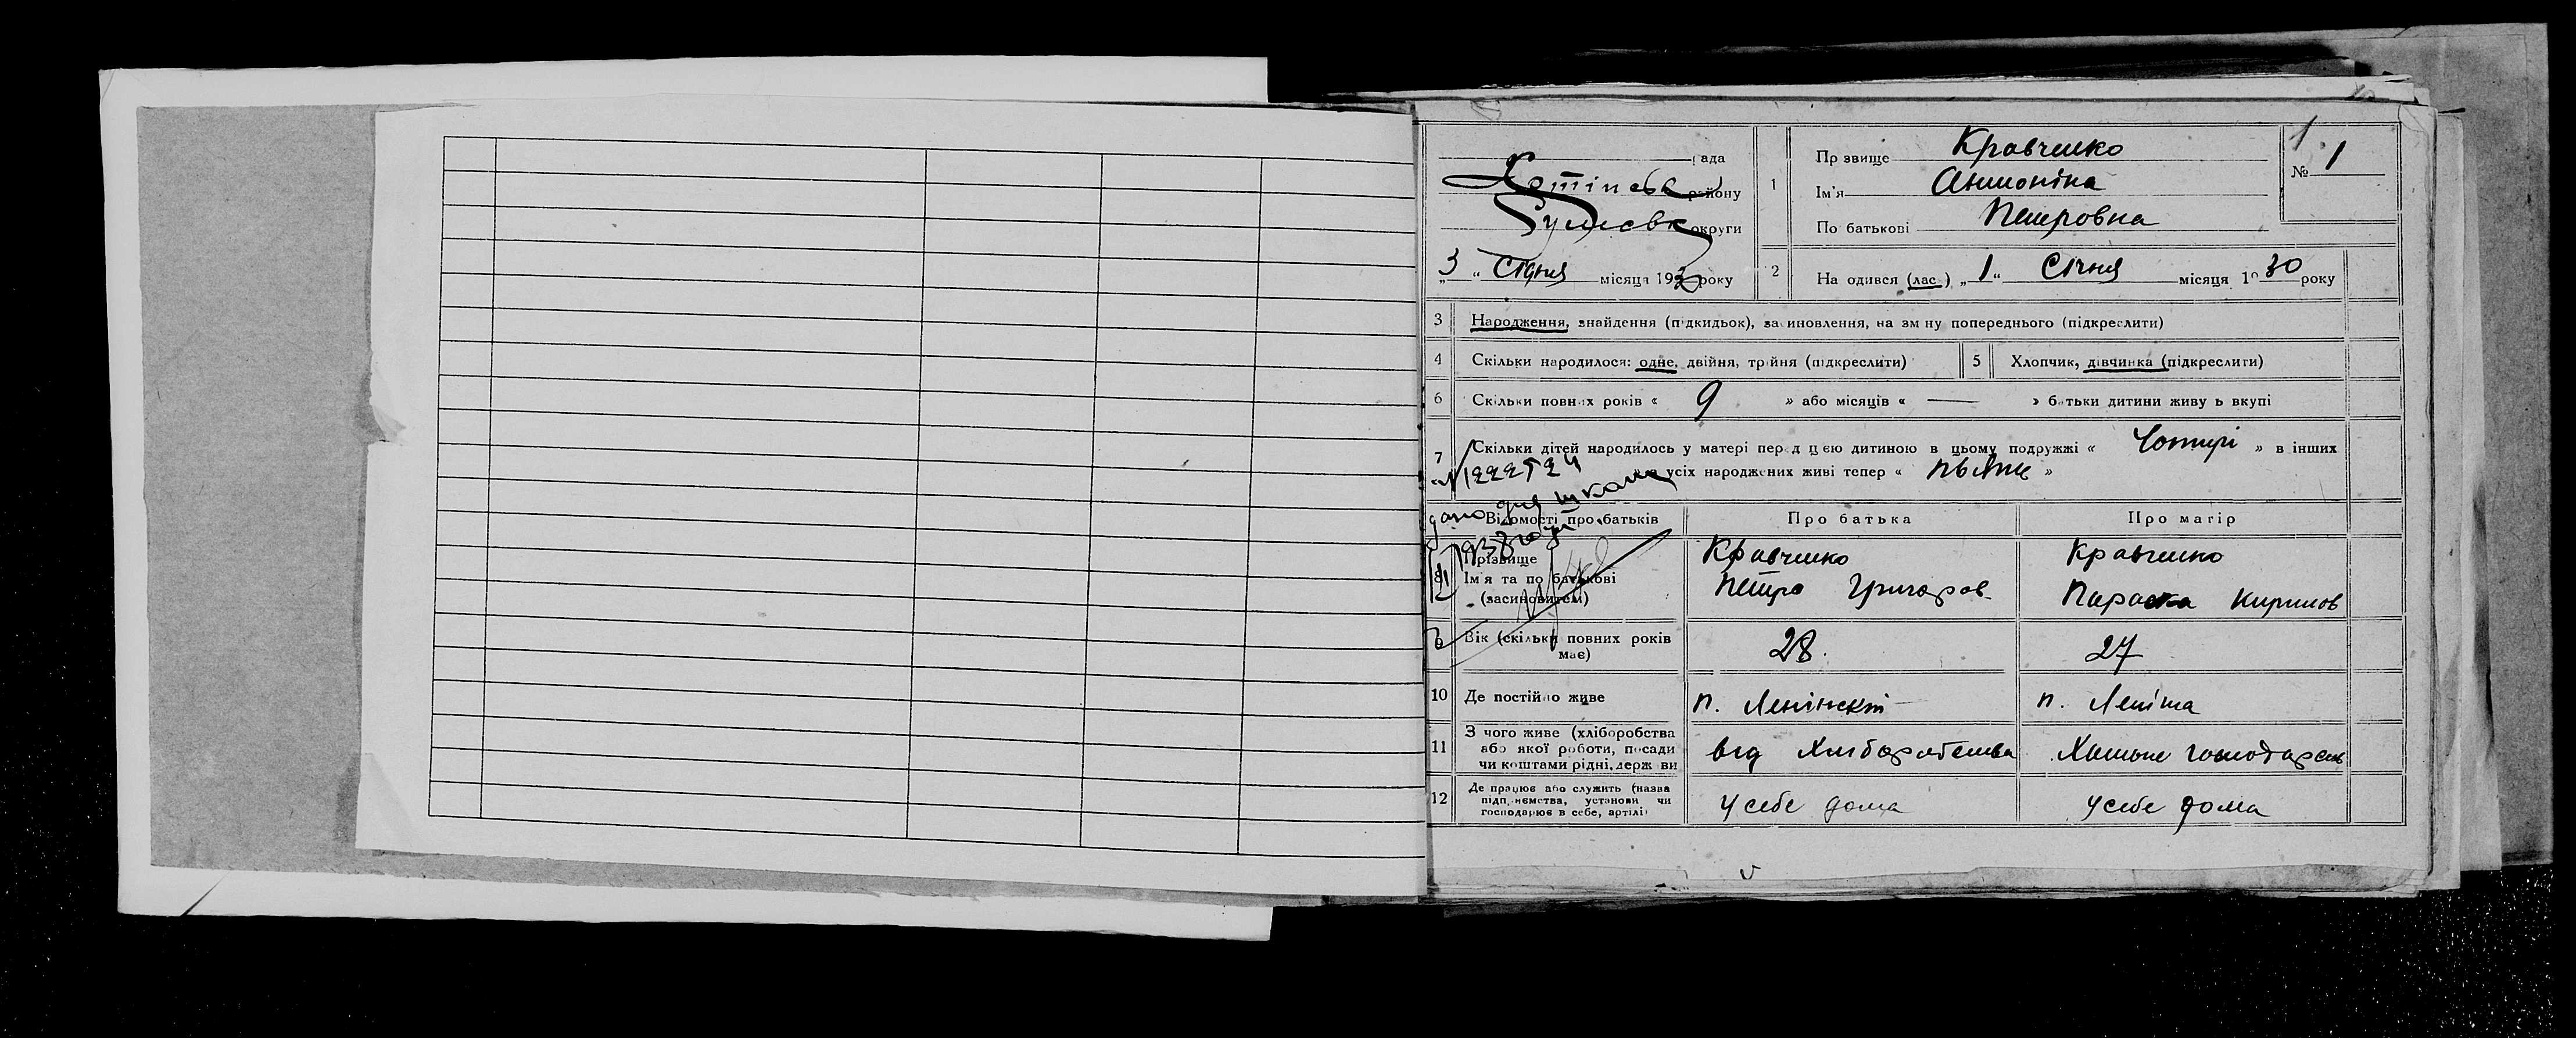 рада
Хотінськ району
Сумськ округи
„3“ Січня місяця 1930 року
1 Прізвище Кравченко
Ім'я Антоніна
По батькові Петровна
№ 1
2 Народився (лас) „1“ Січня місяця 1930 року
3 Народження, знайдення (підкидьок), засиновлення, на зміну попереднього (підкреслити)
4 Скільки народилося: одне, двійня, трійня (підкреслити)
5 Хлопчик, дівчинка (підкреслити)
6 Скільки повних років « 9 » або місяців « — » батьки дитини живуть вкупі
7 Скільки дітей народилось у матері перед цією дитиною в цьому подружжі « Чотирі » в інших
усіх народжених живі тепер « пьять »
№ 1222524
дано для школи
1938
Відомості про батьків Про батька Про матір
8 Прізвище Кравченко Кравченко
Ім'я та по батькові Петро Григоров Параска Кирилов
(засиновителі)
Вік (скільки повних років 28 27
має)
10 Де постійно живе п. п.
11 З чого живе (хліборобства
або якої роботи, посади від Хліборобства Хатьне господарств
чи коштами рідні, держави
12 Де працює або служить (назва
підприємства, установи чи у себе дома у себе дома
господарює в себе, артілі)